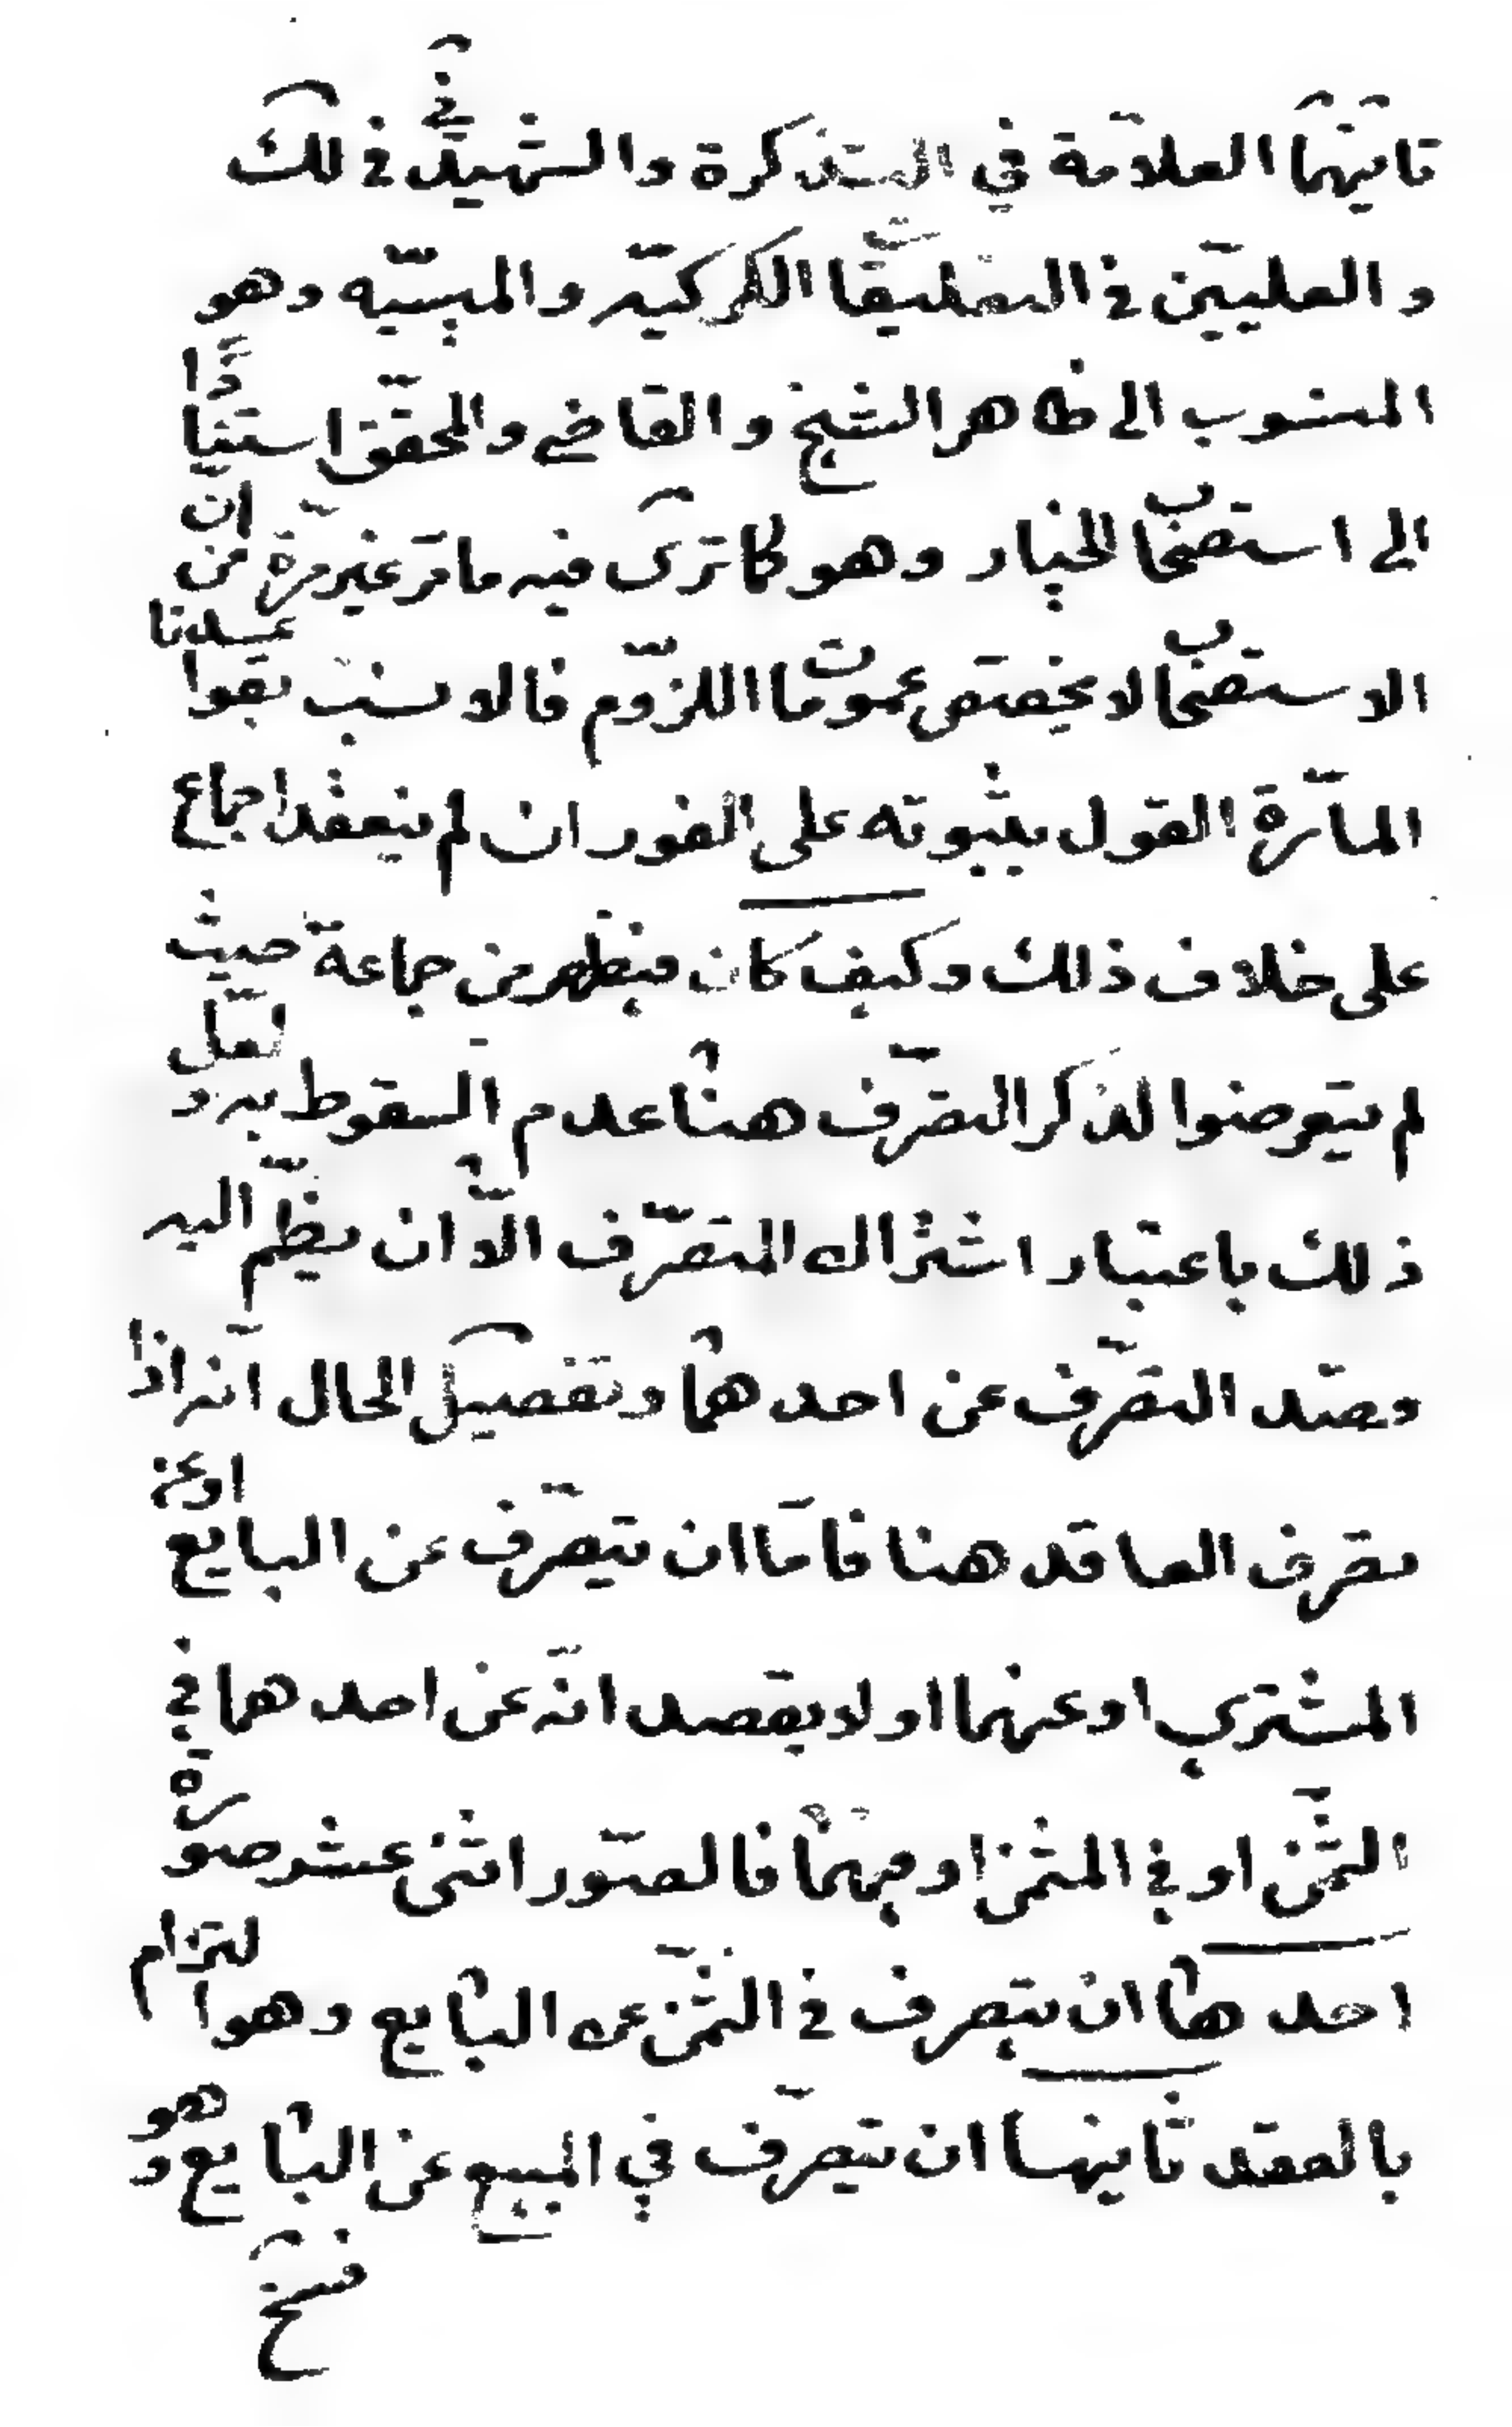 ثانيهما العلامة في التذكرة والشهيد في ذلك
والعليين في التعليقات الكركيّه والميسيّه وهو
المنسوب الى ظاهر الشيخ والقاضي والمحقّق استنادًا
الى استصحاب الخيار وهو كما ترى فيه ما مرّ غير مرة من انّ
الاستصحاب لا يخصّص عمومات اللزّوم فالانسب بقواعدنا
المارّة القول بثبوته على الفور ان لم ينعقد اجماع
على خلاف ذلك وكيف كان فيظهر من جماعة حيث
لم يتعرضوا لذكر التصّرف هنا عدم السقوط به ولعل
ذلك باعتبار اشتراك التصّرف الّا ان يظمّ اليه
وصد التصّرف عن احدهما وتفصيل الحال انّه اذا
تصرف العاقد هنا فامّا ان يتصّرف عن البايع او عن
المشتري او عنهما او لا يقصد انّه عن احدهما في
الثمّن او في المثمن او فيهما فالصّور اثنى عشر صورة
احدها ان يتصرف في الثمّن عن البايع وهو التزام
بالعقد ثانيها ان يتصرّف في المبيع عن البايع وهو
فسخ